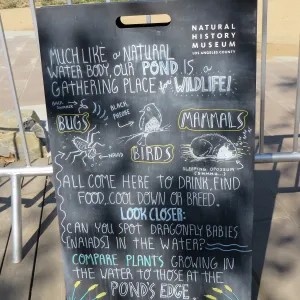 NATURAL
HISTORY
MUSEUM
LOS ANGELES COUNTY
MUCH LIKE a NATURAL
WATER BODY, OUR POND IS a
GATHERING PLACE for WILDLIFE!
BLACK
PHOEBE
BUGS
MAMMALS
NAIAD
BIRDS
SLEEPING OPOSSUM
ALL COME HERE TO DRINK, FIND
FOOD, COOL DOWN OR BREED.
LOOK CLOSER:
CAN YOU SPOT DRAGONFLY BABIES
[NAIADS] IN THE WATER?
COMPARE PLANTS GROWING IN
THE WATER TO THOSE AT THE
POND'S EDGE.